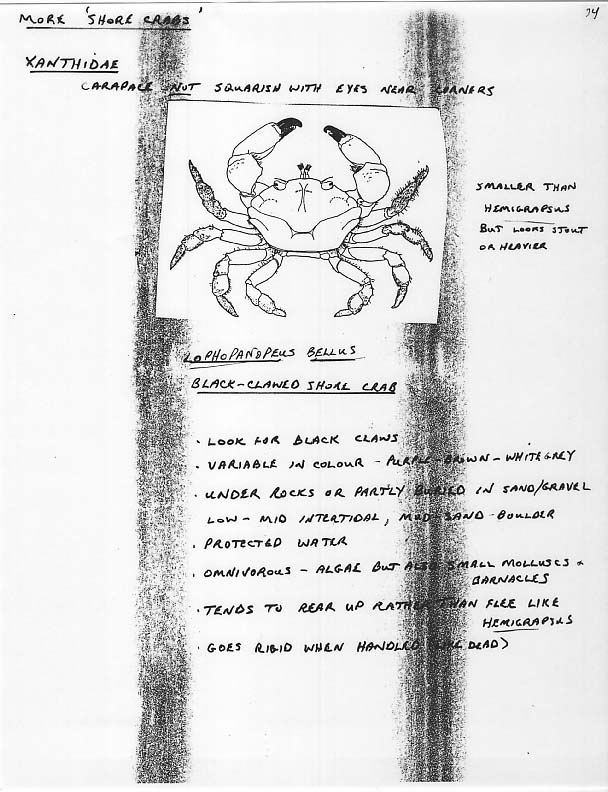 MORE 'SHORE CRABS'
24
XANTHIDAE
CARAPACE NOT SQUARISH WITH EYES NEAR CORNERS
SMALLER THAN
HEMIGRAPSUS
BUT LOOKS STOUT
OR HEAVIER
LOPHOPANOPEUS BELLUS
BLACK-CLAWED SHORE CRAB
· LOOK FOR BLACK CLAWS
· VARIABLE IN COLOUR - PURPLE-BROWN-WHITE&GREY
· UNDER ROCKS OR PARTLY BURIED IN SAND/GRAVEL
LOW-MID INTERTIDAL, MUD-SAND-BOULDER
· PROTECTED WATER
· OMNIVOROUS - ALGAE BUT ALSO SMALL MOLLUSCS &
BARNACLES
· TENDS TO REAR UP RATHER THAN FLEE LIKE
HEMIGRAPSUS
· GOES RIGID WHEN HANDLED (LIKE DEAD)